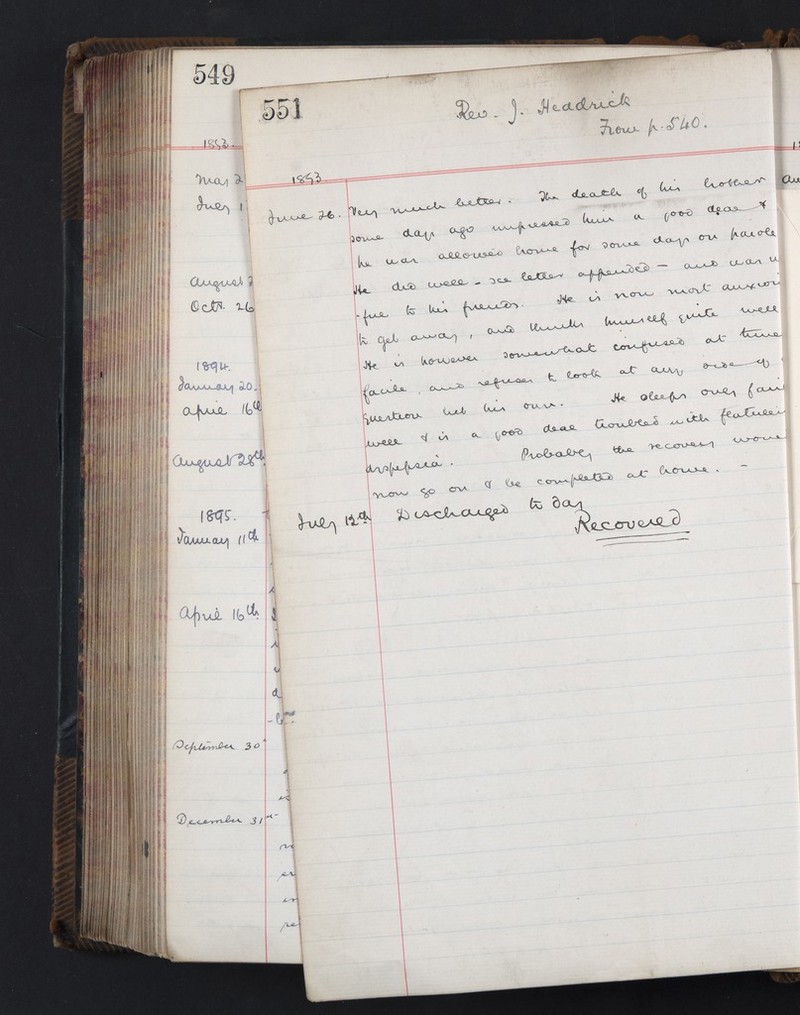 549
1893.
May 2
July 1
August 2
Octr. 26
1894.
January 20.
April 16th
August 28th
1895.
January 11th
April 16th
September 30
December 31st
551
Rev. J. Headrick
From p. 540.
1893.
June 26. Very much better. The death of his brother
some days ago impressed him a good deal &
he was allowed home for some days on parole
He did well - see letter appended - and was
to his friends. He is now most anxious
to get away, and thinks himself quite well
He is however somewhat confused at times
facile, and refuses to look at any side of
question but his own. He sleeps only fairly
well & is a good deal troubled with flatulent
dyspepsia. Probably the recovery would
now go on & be completed at home. -
July 12th Discharged to day
Recovered